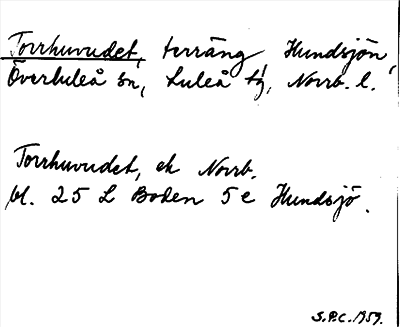 Torrhuvudet, terräng, Hundsjön,
Överluleå sn, Luleå tg, Norrb. l.
Torrhuvudet, ek Norrb.
bl. 25 L Boden 5 e Hundsjö.
S.P.C. 1959.